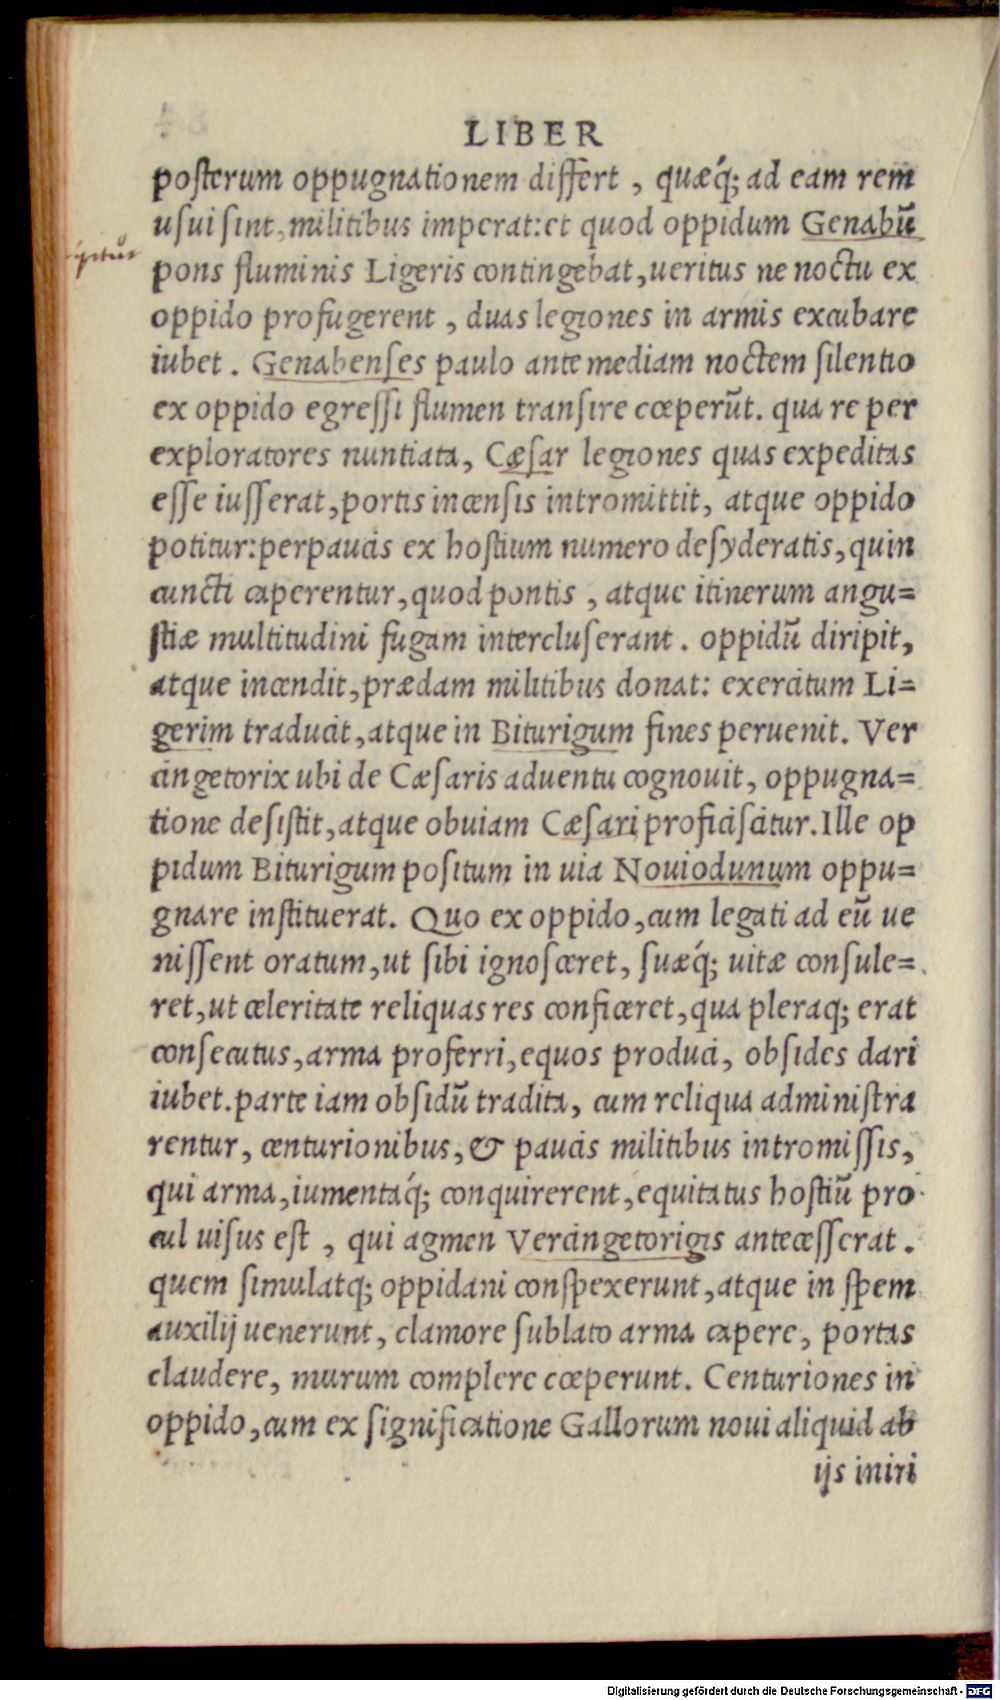 LIBER
posterum oppugnationem differt, quæq́; ad eam rem
usui sint, militibus imperat: et quod oppidum Genabũ
pons fluminis Ligeris contingebat, ueritus ne noctu ex
oppido profugerent, duas legiones in armis excubare
iubet. Genabenses paulo ante mediam noctem silentio
ex oppido egressi flumen transire cœperũt. qua re per
exploratores nuntiata, Cæsar legiones quas expeditas
esse iusserat, portis incensis intromittit, atque oppido
potitur: perpaucis ex hostium numero desyderatis, quin
cuncti caperentur, quod pontis, atque itinerum angu=
stiæ multitudini fugam intercluserant. oppidũ diripit,
atque incendit, prædam militibus donat: exercitum Li=
gerim traducit, atque in Biturigum fines peruenit. Ver
cingetorix ubi de Cæsaris aduentu cognouit, oppugna=
tione desistit, atque obuiam Cæsari proficiscitur. Ille op
pidum Biturigum positum in uia Nouiodunum oppu=
gnare instituerat. Quo ex oppido, cum legati ad eũ ue
nissent oratum, ut sibi ignosceret, suæq́; uitæ consule=
ret, ut celeritate reliquas res conficeret, qua pleraq; erat
consecutus, arma proferri, equos produci, obsides dari
iubet. parte iam obsidũ tradita, cum reliqua administra
rentur, centurionibus, & paucis militibus intromissis,
qui arma, iumentaq́; conquirerent, equitatus hostiũ pro
cul uisus est, qui agmen Vercingetorigis antecesserat.
quem simulatq; oppidani conspexerunt, atque in spem
auxilij uenerunt, clamore sublato arma capere, portas
claudere, murum complere cœperunt. Centuriones in
oppido, cum ex significatione Gallorum noui aliquid ab
ijs iniri
Digitalisierung gefördert durch die Deutsche Forschungsgemeinschaft - DFG